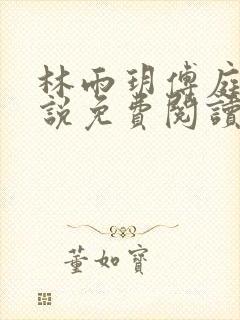 林雨玥傅庭
說免費閱讀
董如寶